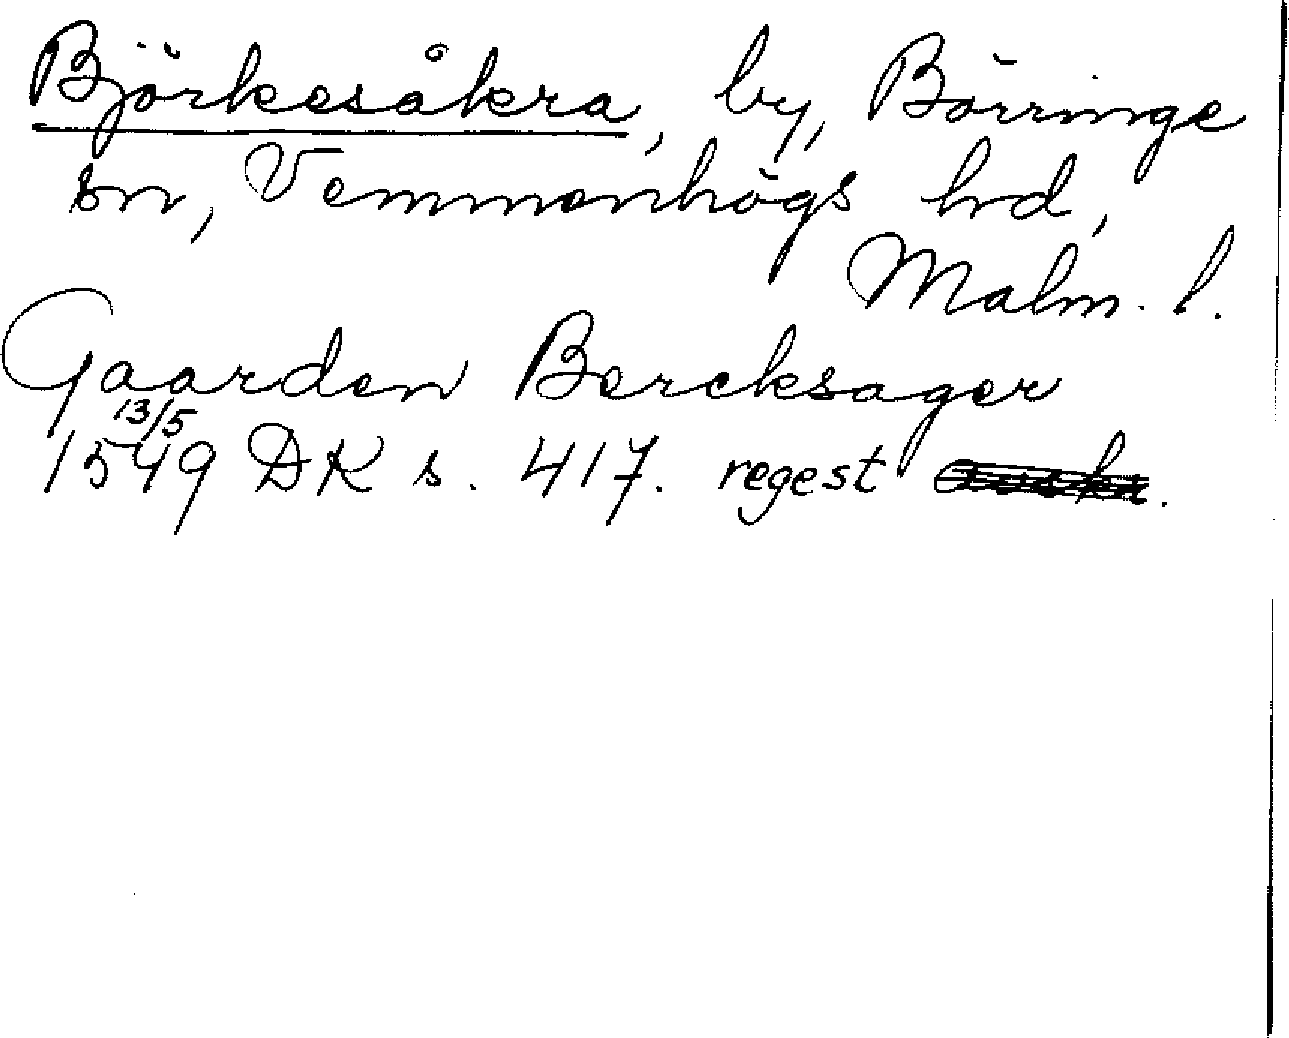 Björkesåkra, by, Börringe
sn, Vemmenhögs hd,
Malm. l.
Gaarden Bercksager
13/5
1549 DK s. 417. regest